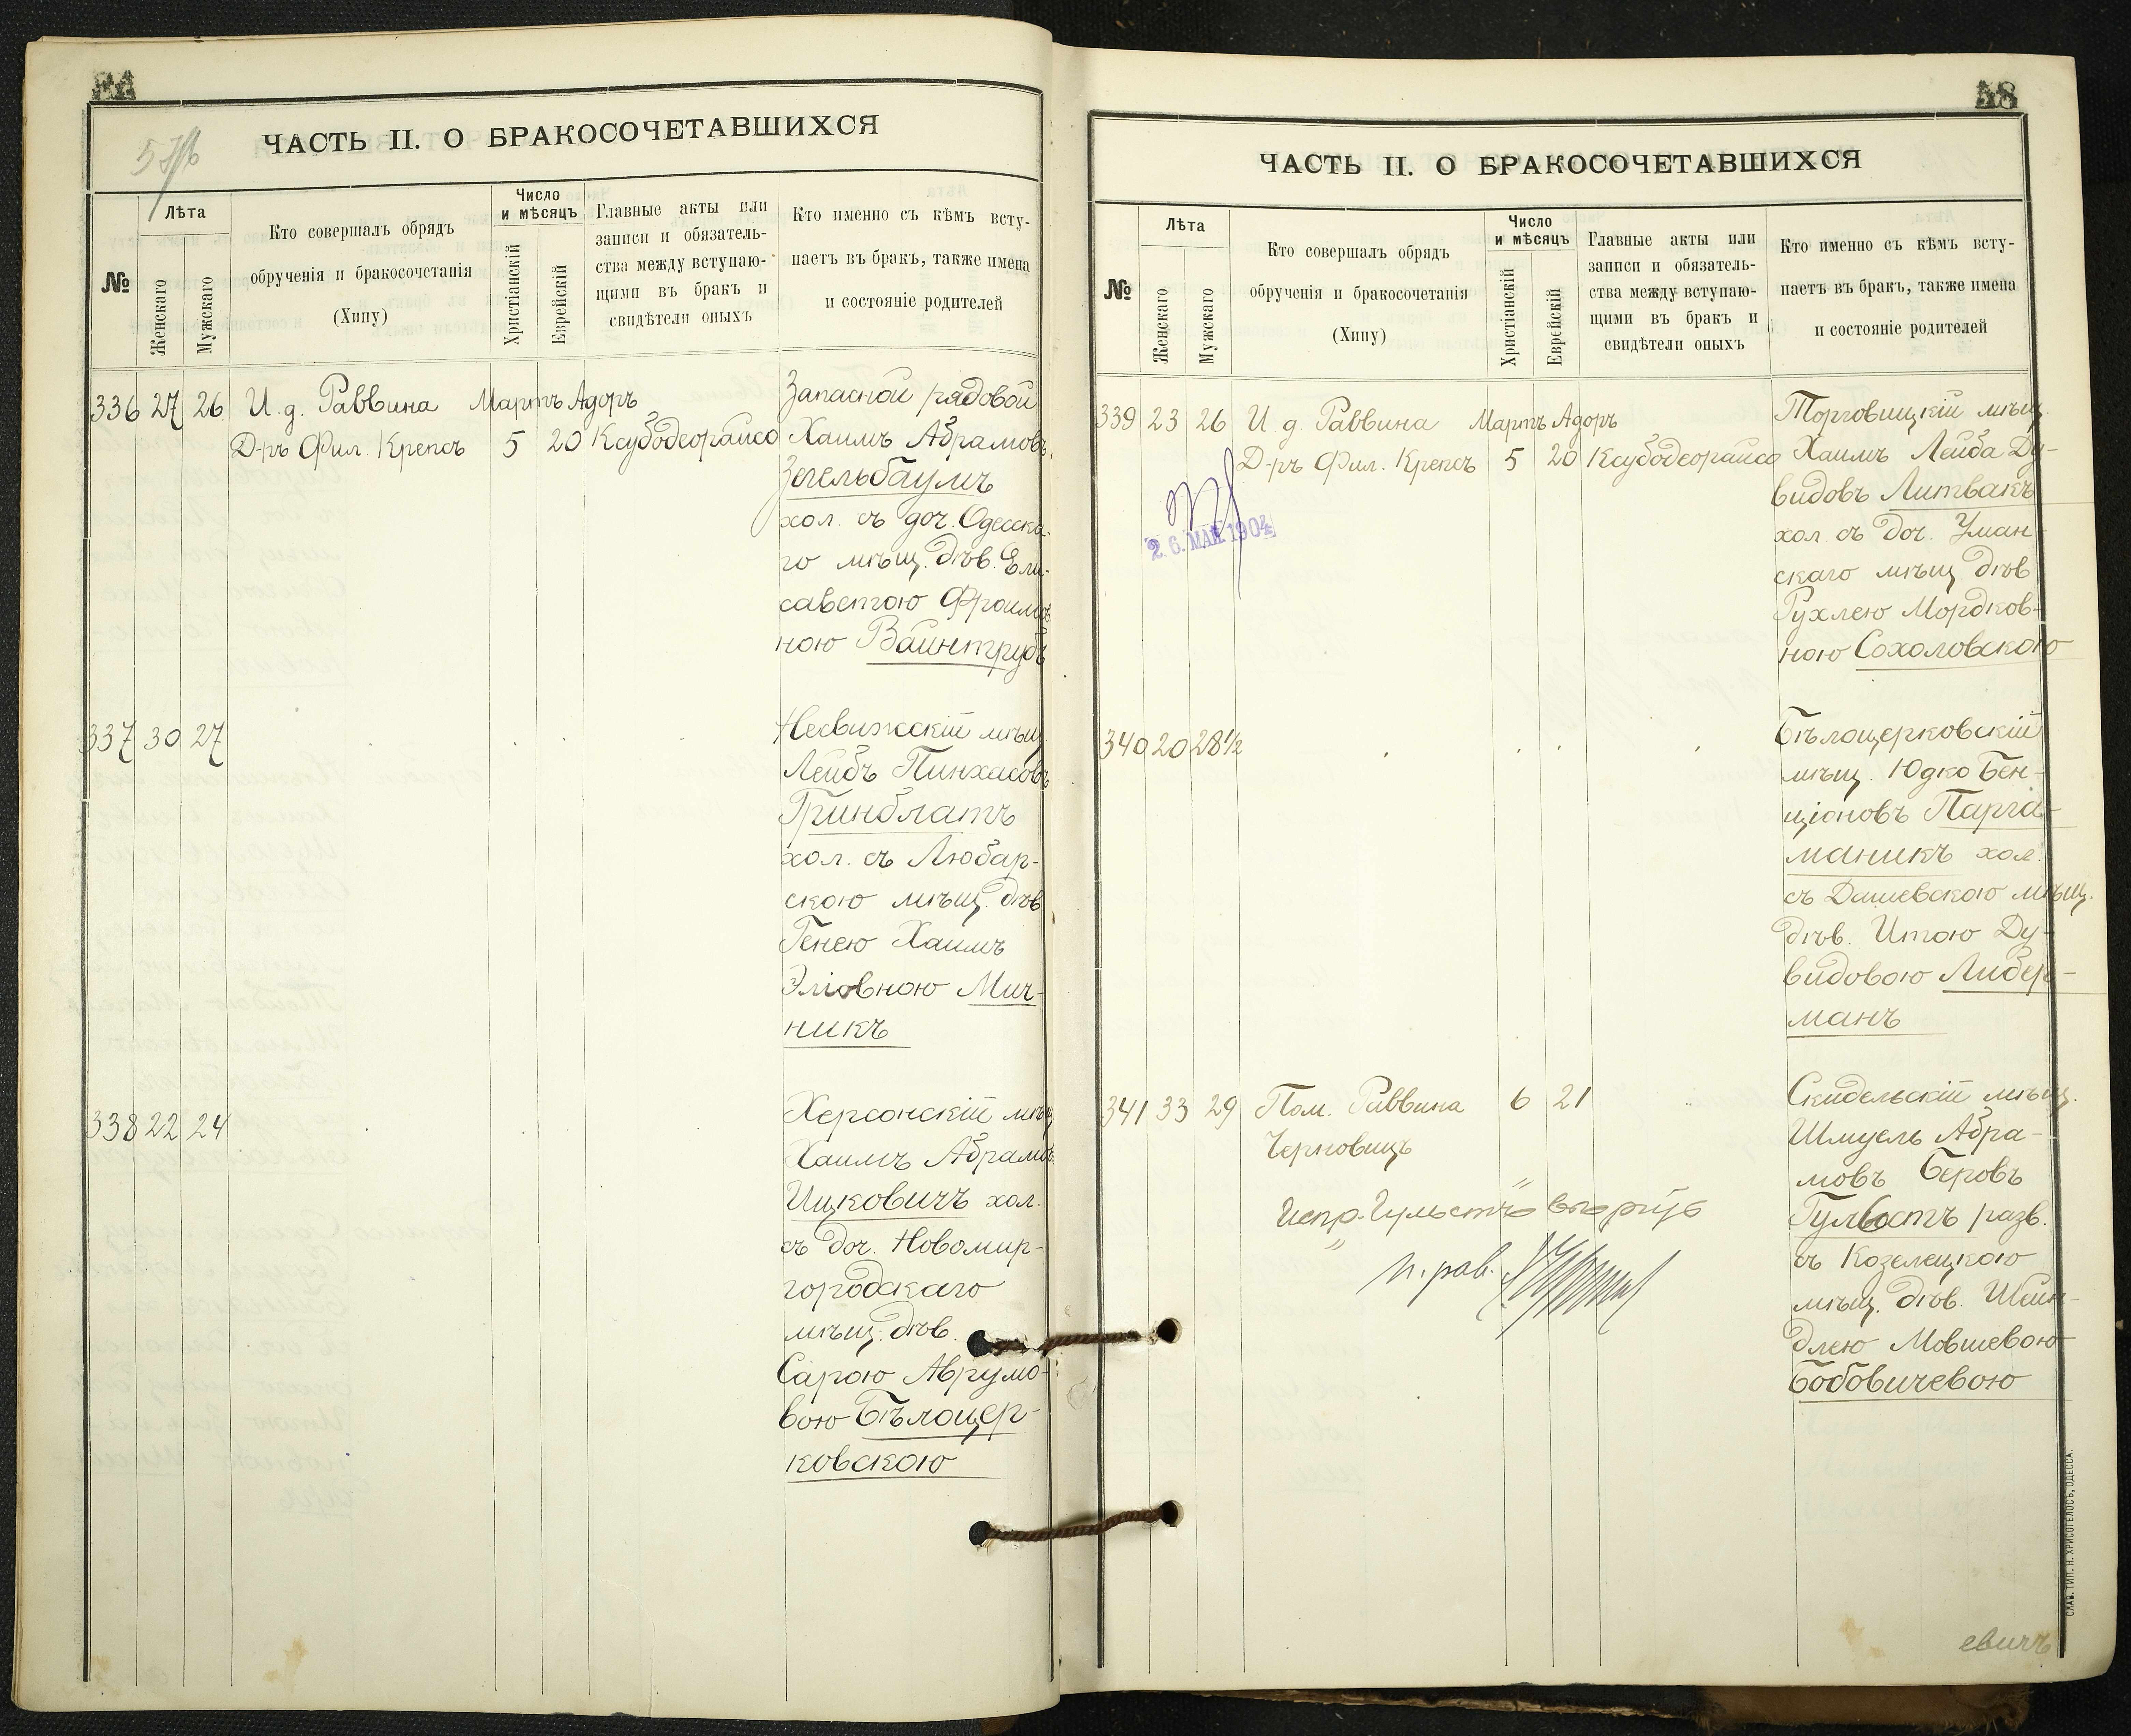 ЧАСТЬ II. О БРАКОСОЧЕТАВШИХСЯ
№
Лѣта
Женскаго
Мужскаго
Кто совершалъ обрядъ
обрученія и бракосочетанія
(Хипу)
Число
и мѣсяцъ
Христіанскій
Еврейскій
Главные акты или
записи и обязатель-
ства между вступаю-
щими въ бракъ и
свидѣтели оныхъ
Кто именно съ кѣмъ всту-
паетъ въ бракъ, также имена
и состояніе родителей
336 27 26 И. д. Раввина Мартъ Адоръ
Д-ръ Фил. Крепсъ 5 20 Ксубодеорайсо
Запасной рядовой
Хаимъ Абрамовъ
Зегельбаумъ
хол. съ доч. Одесска-
го мѣщ. дѣв. Ели-
саветою Фроимов-
ною Вайнтрубъ
337 30 27
Несвижскій мѣщ.
Лейбъ Пинхасовъ
Гринблатъ
хол. съ Любар-
скою мѣщ. дѣв.
Генею Хаимъ
Эліовною Мич-
никъ
338 22 24
Херсонскій мѣщ
Хаимъ Абрамов.
Ицковичъ хол.
съ доч. Новомир-
городскаго
мѣщ. дѣв.
Сарою Аврумо-
вою Бѣлоцер-
ковскою
48
ЧАСТЬ II. О БРАКОСОЧЕТАВШИХСЯ
№
Лѣта
Женскаго
Мужскаго
Кто совершалъ обрядъ
обрученія и бракосочетанія
(Хипу)
Число
и мѣсяцъ
Христіанскій
Еврейскій
Главные акты или
записи и обязатель-
ства между вступаю-
щими въ бракъ и
свидѣтели оныхъ
Кто именно съ кѣмъ всту-
паетъ въ бракъ, также имена
и состояніе родителей
339 23 26 И. д. Раввина Мартъ Адоръ
Д-ръ Фил. Крепсъ 5 20 Ксубодеорайсо
26. МАЯ 1904
Торговицкій мѣщ.
Хаимъ Лейба Ду-
видовъ Литвакъ
хол. съ доч. Уман-
скаго мѣщ. дѣв
Рухлею Мордков-
ною Соколовскою
340 20 28½
Бѣлоцерковскій
мѣщ. Юдко Бен-
ціоновъ Парга-
маникъ хол.
съ Дашевскою мѣщ.
дѣв. Итою Ду-
видовою Либер-
манъ
341 33 29 Пом. Раввина 6 21
Черновицъ
Скидельскій мѣщ.
Шмуель Абра-
мовъ Беровъ
Гульбатъ разв.
съ Козелецкою
мѣщ. дѣв. Шейн-
длею Мовшевою
Бобовичевою
п. рав.
евичъ
СЛАВ. ТИП. Н. ХРИСОГЕЛОСЪ, ОДЕССА.